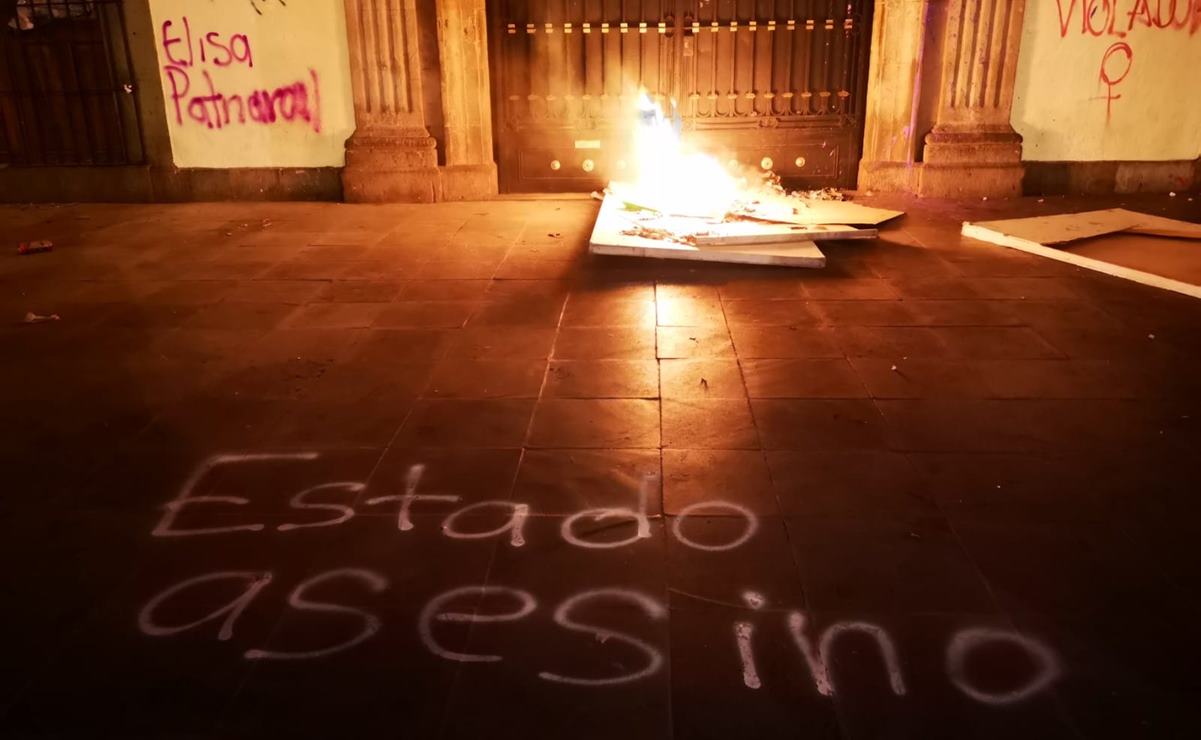 Elisa
Patriarcal
VIOLADOR
Estado
asesino